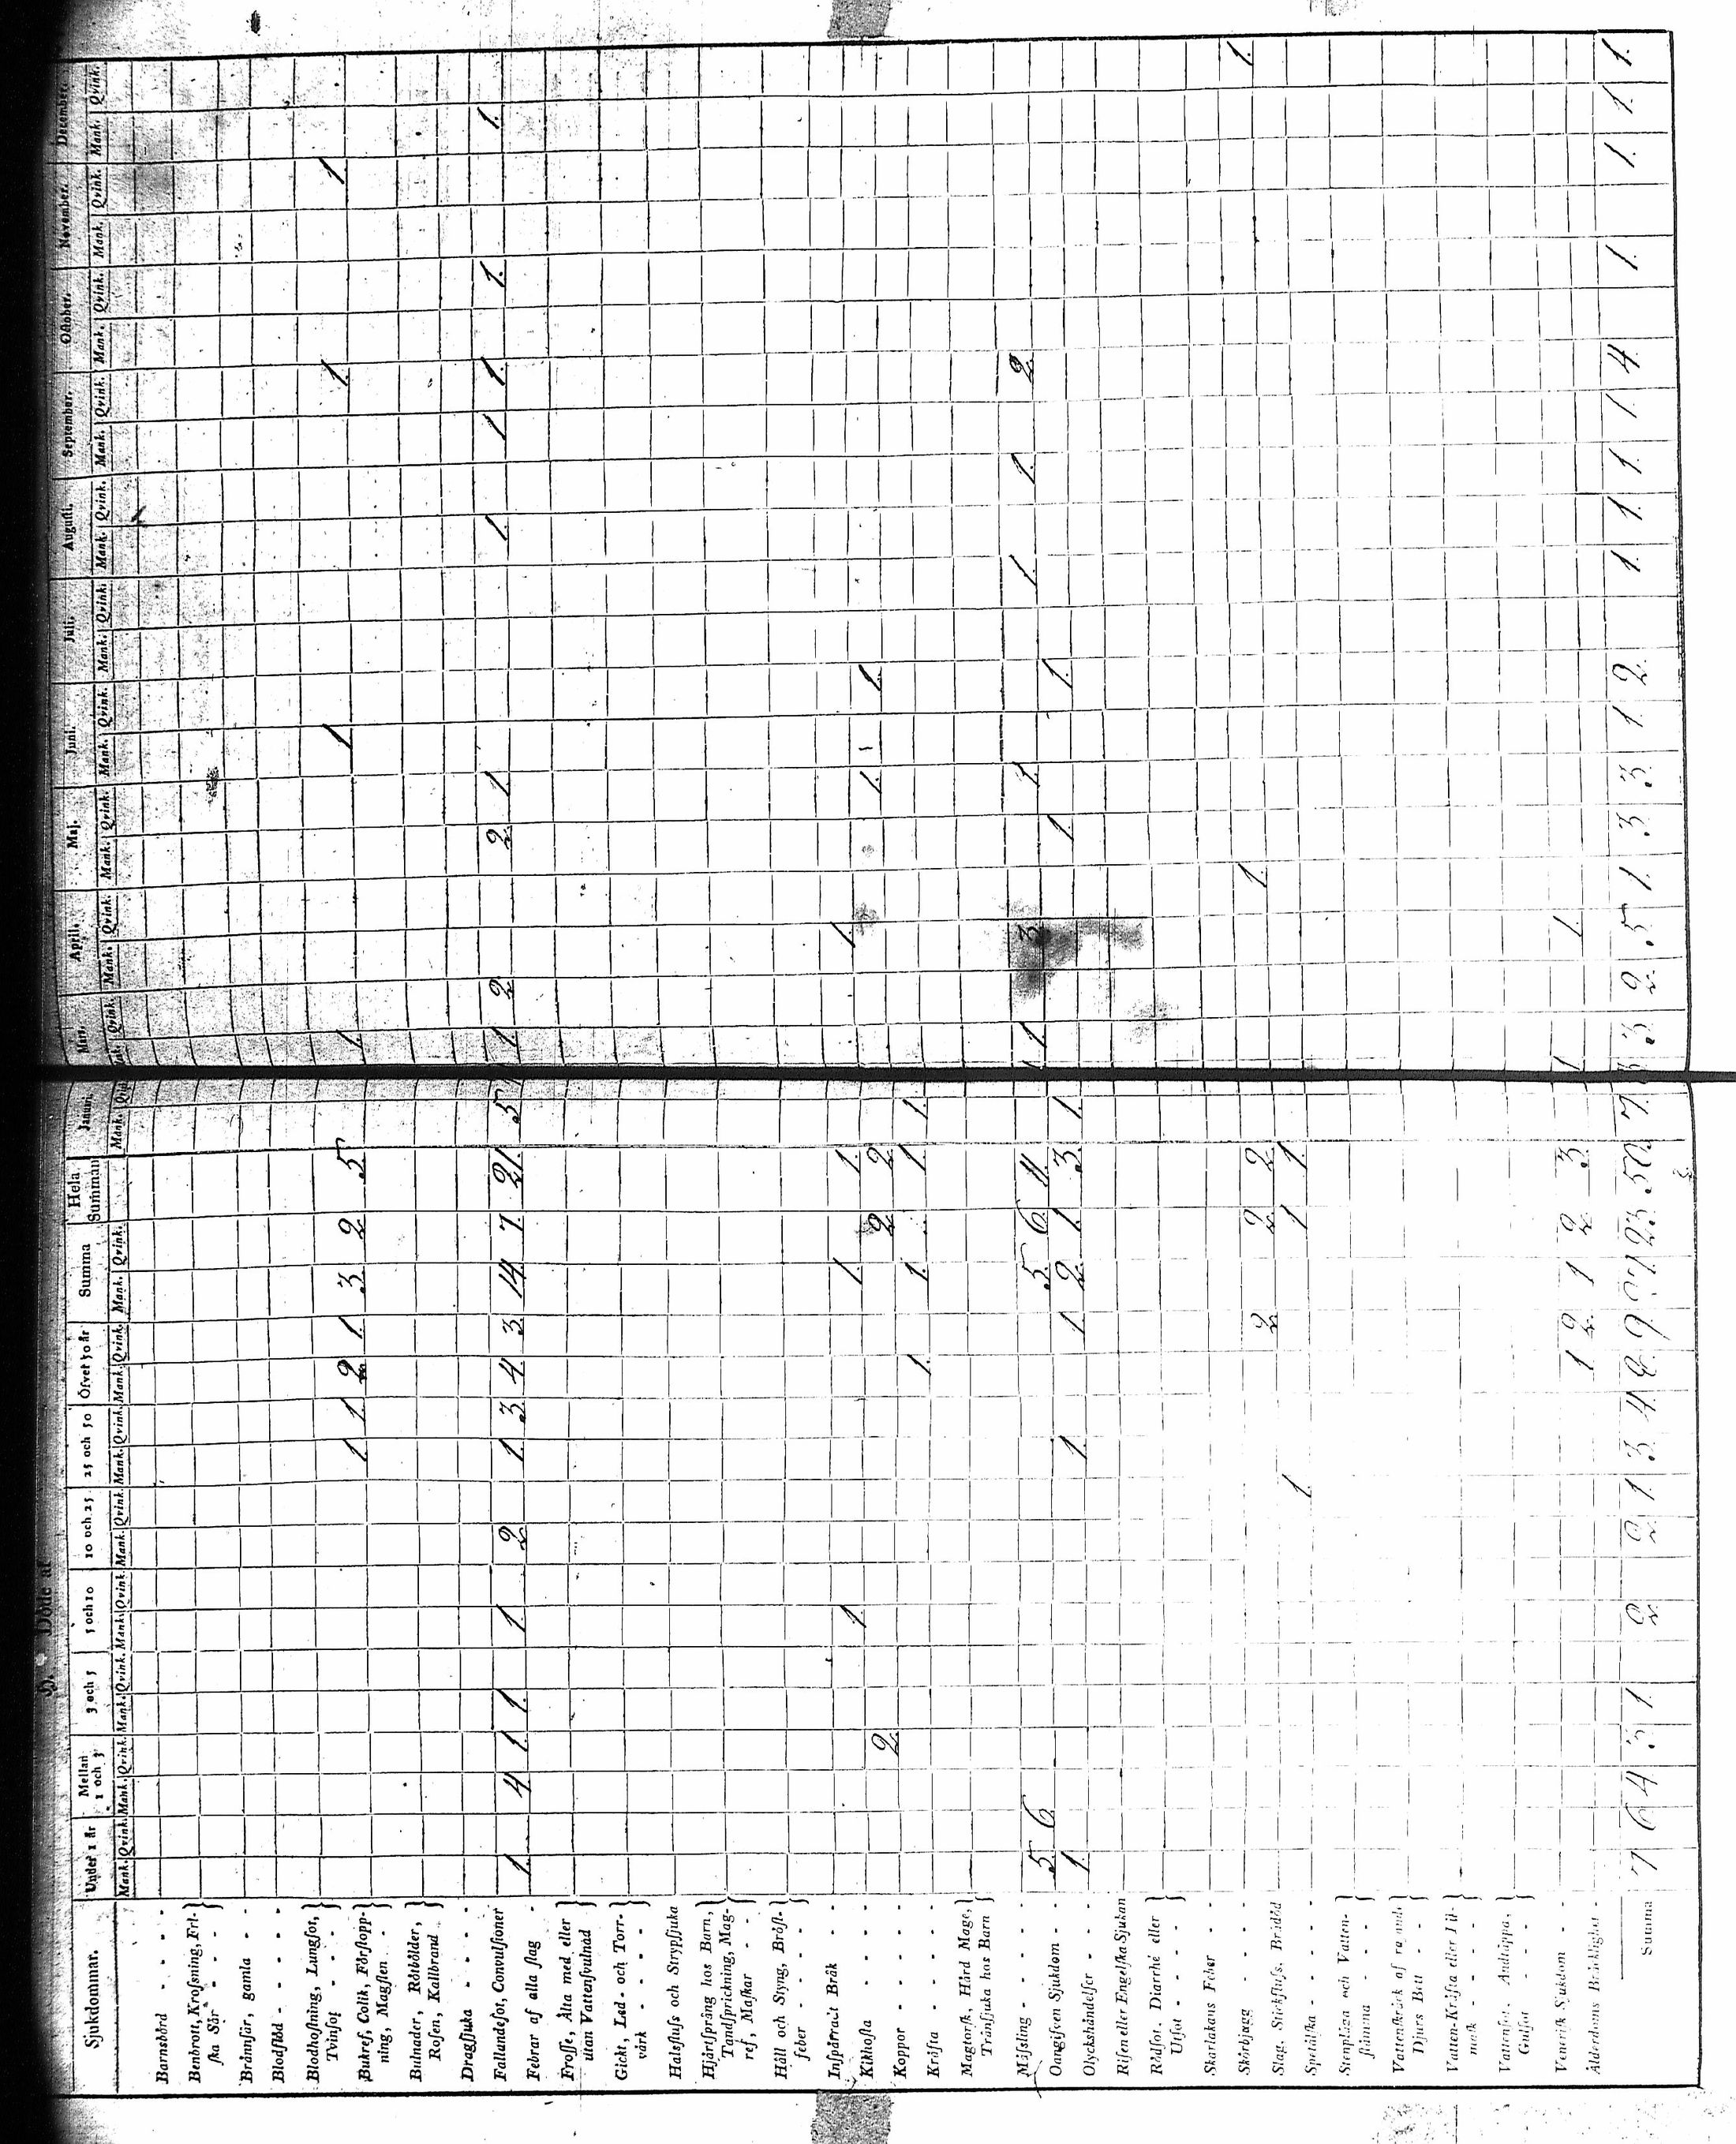 H. Döde af
Sjukdommar. Under 1 år Mellan 1 och 3 3 och 5 5 och 10 10 och 25 25 och 50 Öfvet 50 år Summa Hela Summan Januari. Mars. April. Maj. Juni. Juli. Augusti. September. October. November. December.
Mank. Qvink. Mank. Qvink. Mank. Qvink. Mank. Qvink. Mank. Qvink. Mank. Qvink. Mank. Qvink. Mank. Qvink. Mank. Qvink. Mank. Qvink. Mank. Qvink. Mank. Qvink. Mank. Qvink. Mank. Qvink. Mank. Qvink. Mank. Qvink. Mank. Qvink. Mank. Qvink.
Barnsbörd - - -
Benbrott, Krosning, Fri-
ska Sår - - -
Brännsår, gamla - -
Blodflöd - - -
Blodhostning, Lungsot,
Tvinsot - -
Bukref, Colik, Förstopp- 1 1 2 1 3 2 5 1 1 1 1
ning, Magsten - -
Bulnader, Rötbölder,
Rosen, Kallbrand
Dragsjuka - - -
Fallandesot, Convulsioner
Febrar af alla slag - 1 4 1 1 1 2 1 3 4 3 14 7 21 5 1 1 2 2 1 1 1 1 1 1
Frosse, Älta med eller
utan Vattensvulnad
Gickt, Led- och Torr-
värk - - -
Halsfluss och Strypsjuka
Hjärtsprång hos Barn,
Tandsprickning, Mag-
ref, Maskar - -
Håll och Styng, Bröst-
feber - - -
Inspärradt Bråk -
Kikhosta - - - 1 1 1 1
Koppor - - - 2 2 2 1 1
Kräfta - - - 1 1 1 1
Magtorsk, Hård Mage,
Trånsjuka hos Barn
Mässling - - -
Oangifven Sjukdom - - 5 6 5 6 11 1 1 3 1 1 1 2
Olyckshändelser - - 1 1 1 2 1 3 1 1 1
Risen eller Engelska Sjukan
Rödsot, Diarrhé eller
Utsot - - -
Skarlakans Feber - -
Skörbjugg - - -
Slag, Stickfluss, Brådöd 2 2 2 1 1
Spetälska - - - 1 1 1
Stenplåga och Vatten-
stämma - - -
Vattenskräck af rasande
Djurs Bett - -
Vatten-Kräfta eller
- - -
Vattensot, Andtäppa,
Gulsot - - -
Venerisk Sjukdom - -
Ålderdoms Bräcklighet - 1 2 1 2 3 1 1
Summa 7 6 4 3 1 2 2 1 3 4 8 9 27 23 50 7 3 3 2 5 1 3 3 1 2 1 1 1 1 4 1 1 1 1